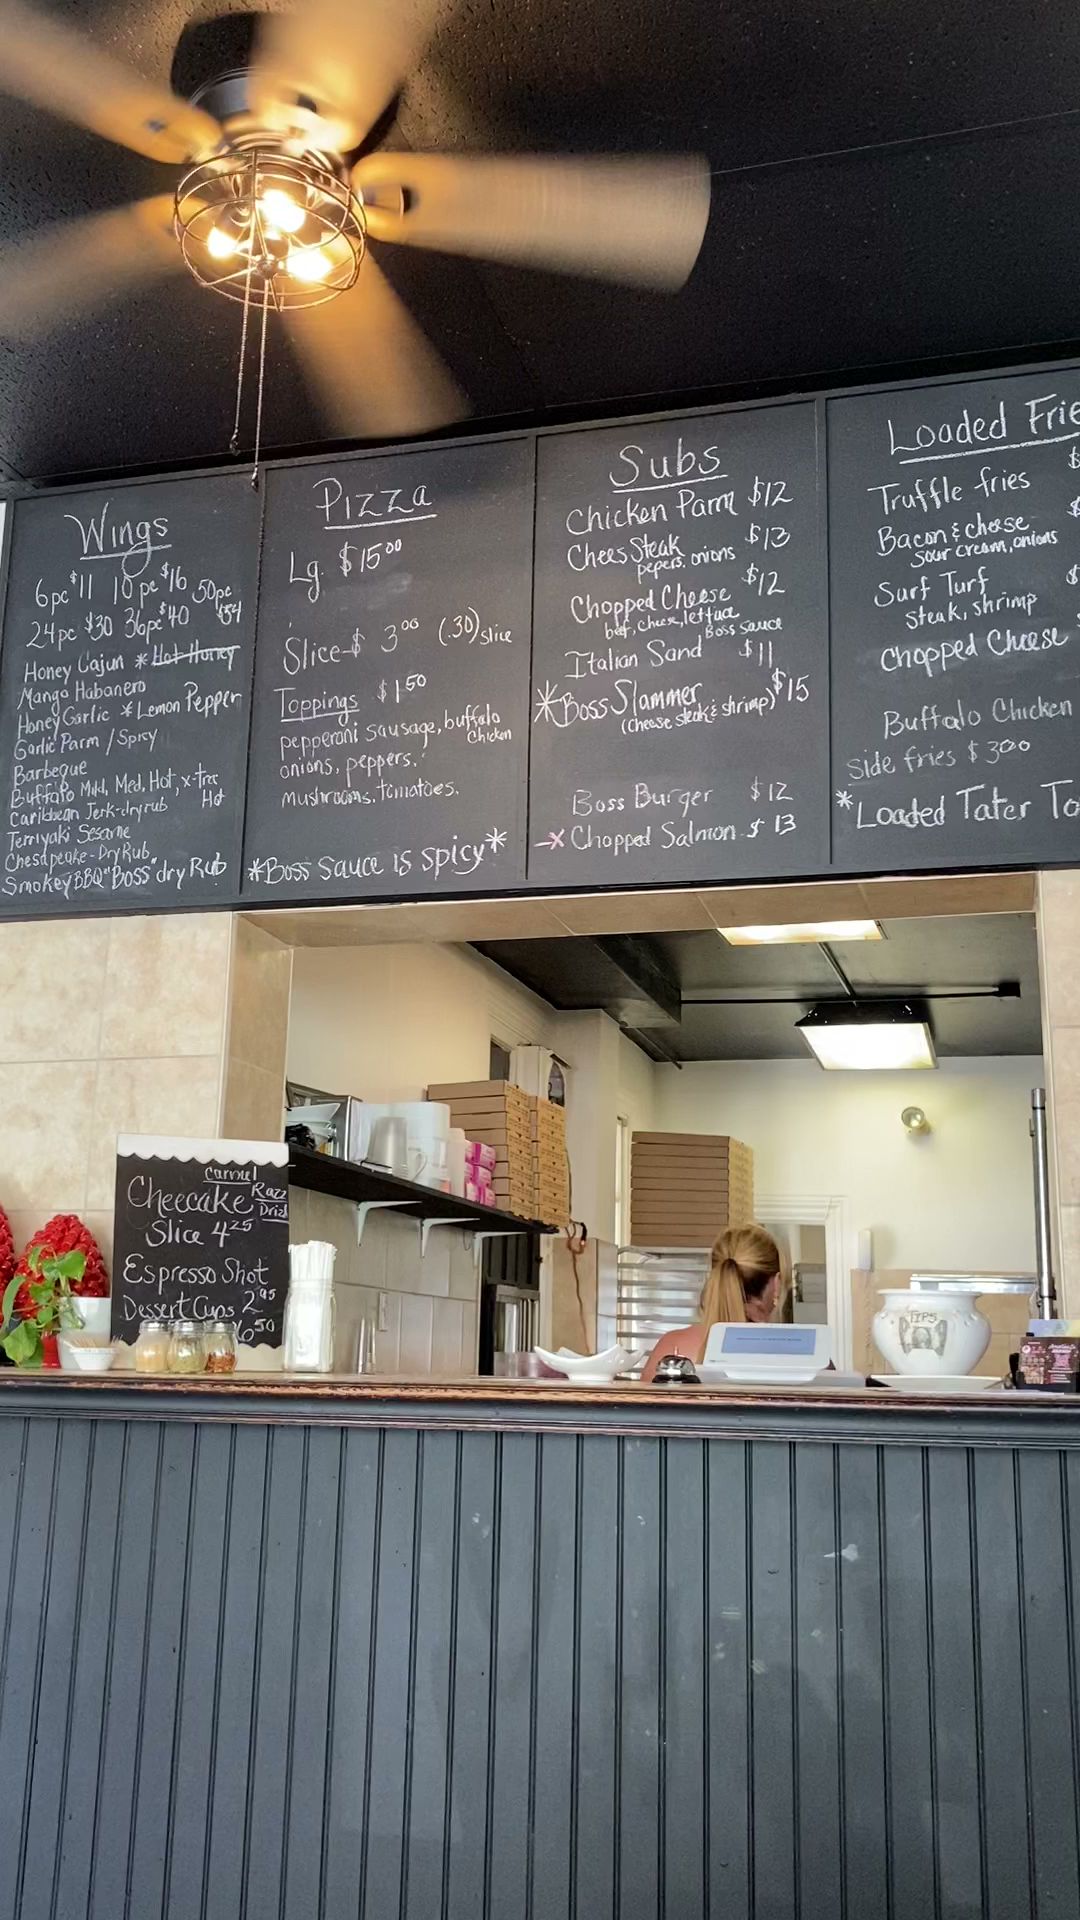 Wings
6pc $11 10pc $16 50pc
24pc $30 36pc $40 $54
Honey Cajun * Hot Honey
Mango Habanero
Honey Garlic * Lemon Pepper
Garlic Parm / Spicy
Barbeque
Buffalo Mild, Med, Hot, x-tra Hot
Caribbean Jerk-dry rub
Terriyaki Sesame
Chesapeake-Dry Rub
Smokey BBQ "Boss" dry Rub
Pizza
Lg. $15.00
Slice-$ 3.00 (.30) slice
Toppings $1.50
pepperoni sausage, buffalo chicken
onions, peppers,
mushrooms, tomatoes.
*Boss Sauce is spicy*
Subs
Chicken Parm $12
Chees Steak $13
pepers, onions
Chopped Cheese $12
beef, cheese, lettuce
Boss sauce
Italian Sand $11
*Boss Slammer $15
(cheese steak & shrimp)
Boss Burger $12
-x Chopped Salmon $13
Loaded Frie
Truffle fries $
Bacon & cheese $
sour cream, onions
Surf Turf $
steak, shrimp
Chopped Cheese $
Buffalo Chicken
side fries $3.00
*Loaded Tater To
Carmel
Cheecake Razz
Slice 4.25 Driz
Espresso Shot
2.95
Dessert Cups
6.50
TIPS